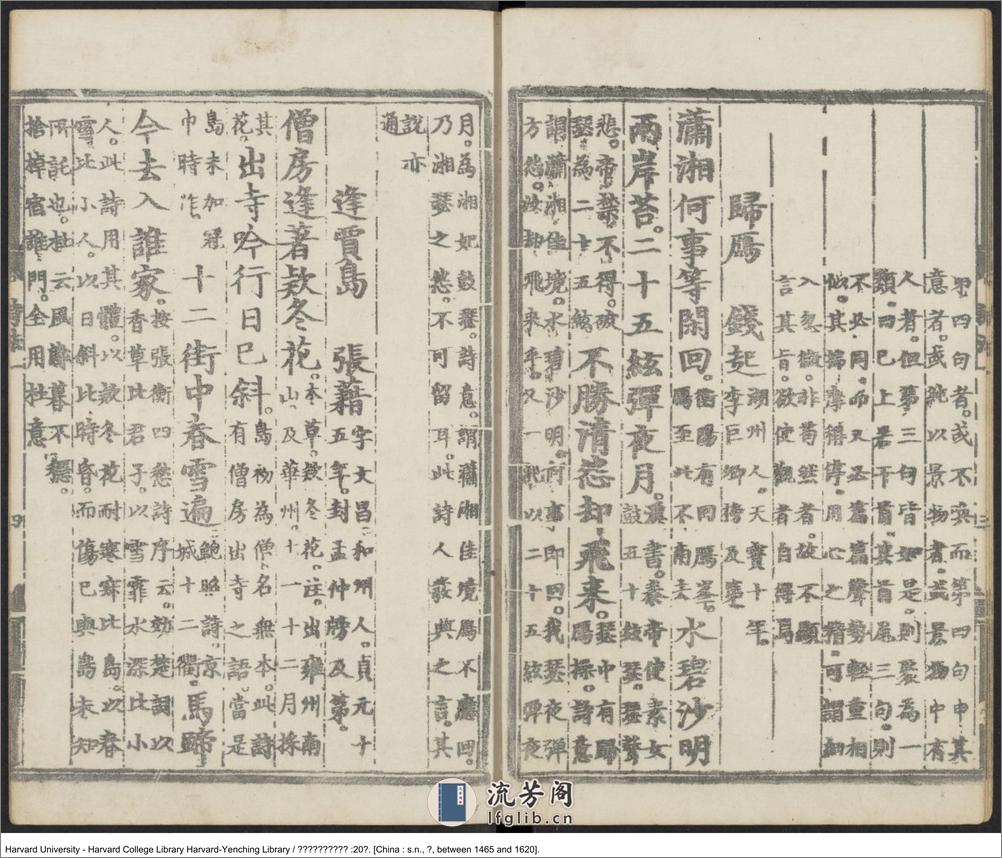 第四句者或不喚而第四句申其
意者。或純以景物者。蓋景物中有
人者。但第三句皆如是。則聚為一
類。四已上若干首。其首尾三句。則
不必同。而又必聲勢輕重相
似。其揣摩積淳。用心之精。可謂細
入忽微。非苟然者。故不顯
言其旨。欲使觀者自得焉
歸鴈　錢起　湖州人。天寶十年。李巨卿牓及第
瀟湘何事等閑回。衡陽有回鴈峯。鴈至此不南去　水碧沙明
兩岸苔。二十五絃彈夜月。漢書。秦帝使素女鼓五十絃瑟。瑟聲
悲。帝禁不得。破瑟為二十五絃　不勝清怨却飛來。瑟中有歸鴈操。詩意
謂瀟湘佳境。水碧沙明。何事即回。我瑟夜彈方怨。汝却飛來乎。又一說以二十五絃彈夜
月。為湘妃鼓瑟。詩意謂瀟湘佳境鴈不應回。乃湘瑟之怨。不可留耳。此詩人發興之言。其
說亦通
逢賈島　張籍　字文昌。和州人。貞元十五年。封孟仲牓及第。
僧房逢著欵冬花。本草。欵冬花。註。出雍州南山及華州。十一十二月採
其花。出寺吟行日已斜。島初為僧名無本。此詩有僧房出寺之語。當是
島未加冠巾時作　十二街中春雪遍　鮑照詩。京城十二衢。馬蹄
今去入誰家。按張衡四愁詩序云。効楚詞以香草比君子。以雪霏水深比小
人。此詩用其體。以欵冬花耐寒寂比島。以春雪比小人。以日斜比時昏。而傷己與島未知
所託也。杜云風暮不捨棹宿誰門。全用杜意。
流芳阁
lfglib.cn
Harvard University - Harvard College Library Harvard-Yenching Library / ?????????? :20?. [China : s.n., ?, between 1465 and 1620].